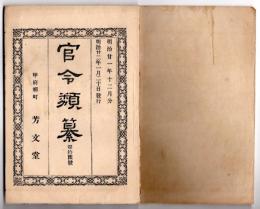 明治廿一年十二月分
明治廿二年一月二十日發行
官令類纂
甲府柳町
芳文堂